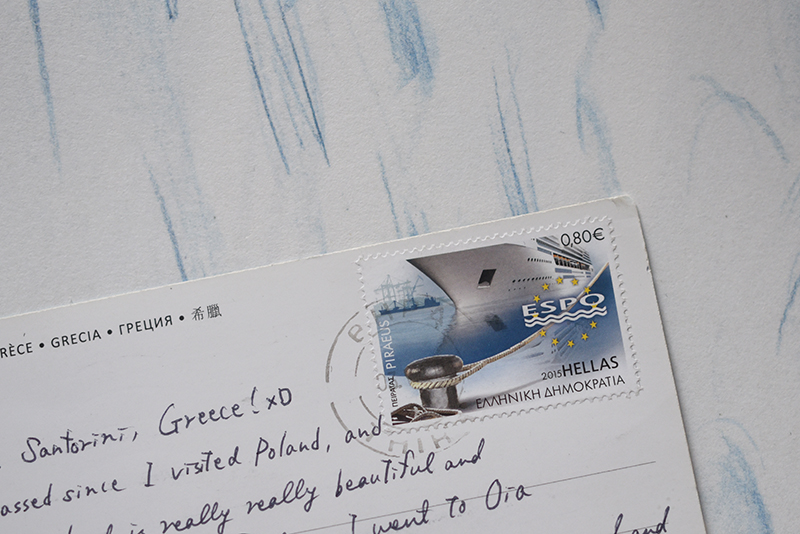 RÈCE • GRECIA • ГРЕЦИЯ • 希臘
0,80€
ESPO
ΠΕΙΡΑΙΑΣ PIRAEUS
2015 HELLAS
ΕΛΛΗΝΙΚΗ ΔΗΜΟΚΡΑΤΙΑ
Santorini, Greece! xD
assed since I visited Poland, and
is really really beautiful and
I went to Oia
and